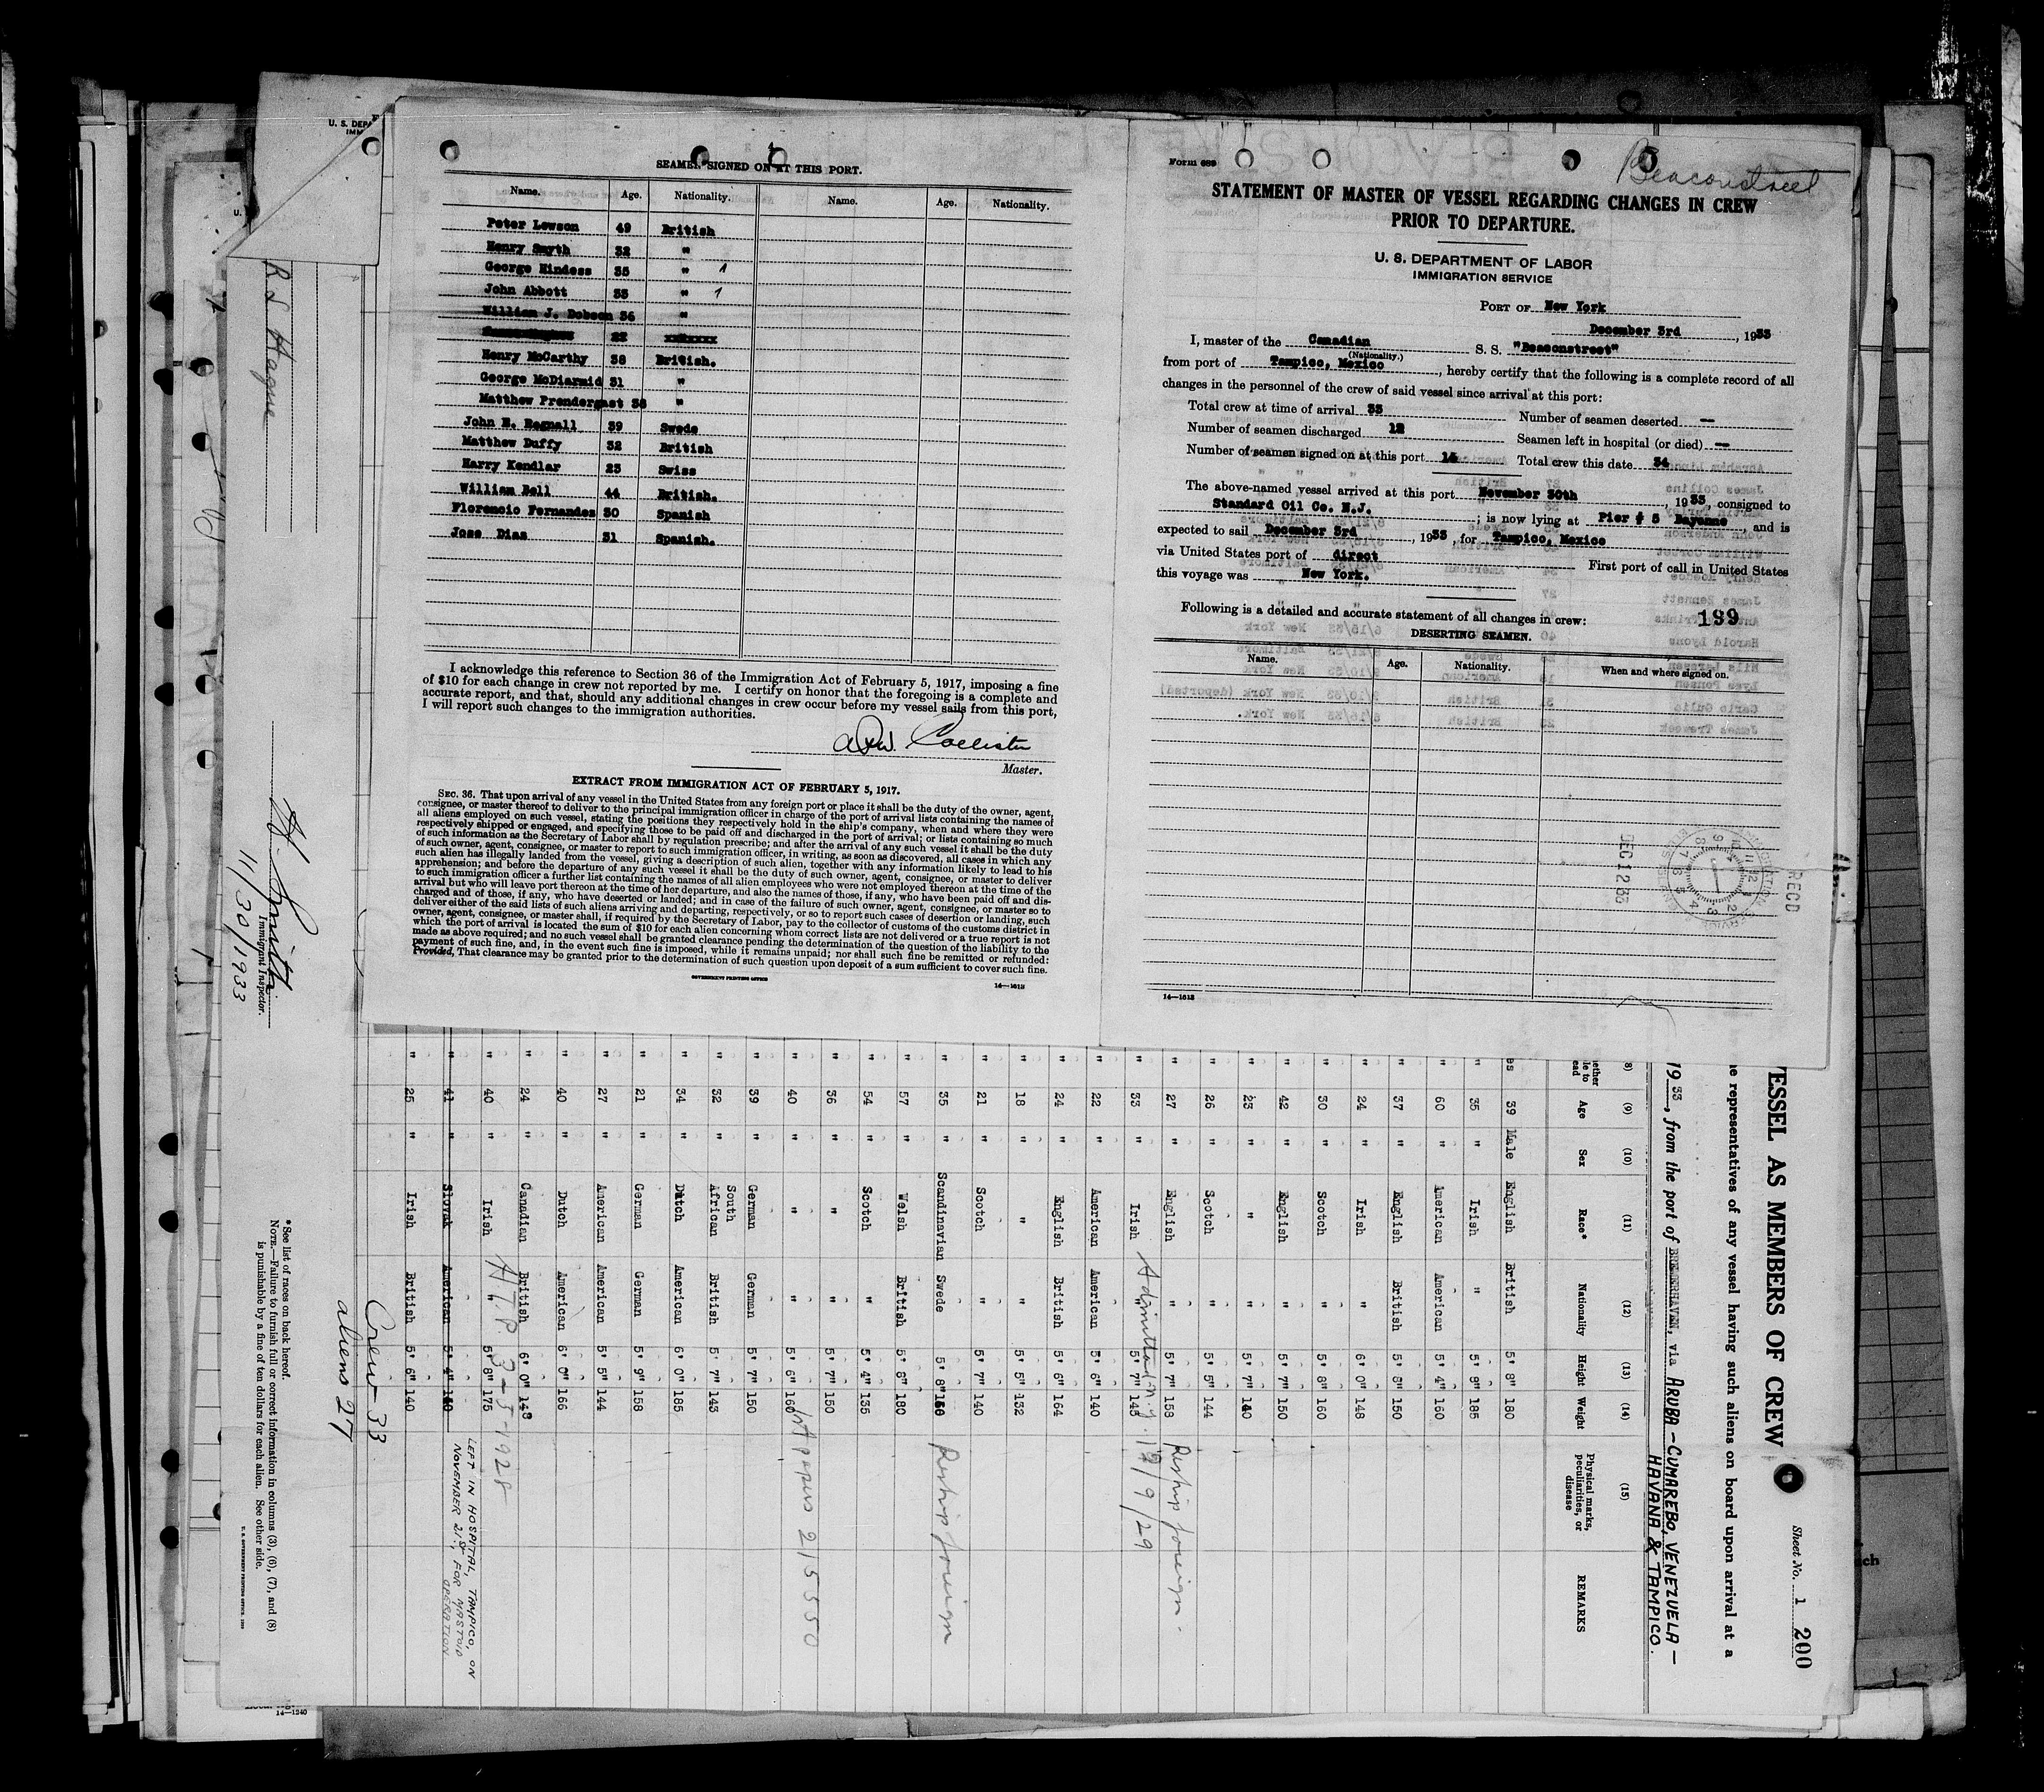 SEAMEN SIGNED ON AT THIS PORT.
Name. Age. Nationality. Name. Age. Nationality.
Peter Lowson 49 British
Henry Smyth 32 "
George Hindess 35 " 1
John Abbott 33 " 1
William J. Dobson 36 "
22 xxxxxxx
Henry McCarthy 38 British.
George McDiarmid 31 "
Matthew Prendergast 38 "
John E. Regnall 39 Swede
Matthew Duffy 32 British
Harry Kendlar 23 Swiss
William Bell 44 British.
Florencio Fernandez 30 Spanish
Jose Dias 31 Spanish.
I acknowledge this reference to Section 36 of the Immigration Act of February 5, 1917, imposing a fine
of $10 for each change in crew not reported by me. I certify on honor that the foregoing is a complete and
accurate report, and that, should any additional changes in crew occur before my vessel sails from this port,
I will report such changes to the immigration authorities.
Master.
EXTRACT FROM IMMIGRATION ACT OF FEBRUARY 5, 1917.
SEC. 36. That upon arrival of any vessel in the United States from any foreign port or place it shall be the duty of the owner, agent,
consignee, or master thereof to deliver to the principal immigration officer in charge of the port of arrival lists containing the names of
all aliens employed on such vessel, stating the positions they respectively hold in the ship's company, when and where they were
respectively shipped or engaged, and specifying those to be paid off and discharged in the port of arrival; or lists containing so much
of such information as the Secretary of Labor shall by regulation prescribe; and after the arrival of any such vessel it shall be the duty
of such owner, agent, consignee, or master to report to such immigration officer, in writing, as soon as discovered, all cases in which any
such alien has illegally landed from the vessel, giving a description of such alien, together with any information likely to lead to his
apprehension; and before the departure of any such vessel it shall be the duty of such owner, agent, consignee, or master to deliver
to such immigration officer a further list containing the names of all alien employees who were not employed thereon at the time of the
arrival but who will leave port thereon at the time of her departure, and also the names of those, if any, who have been paid off and dis-
charged and of those, if any, who have deserted or landed; and in case of the failure of such owner, agent, consignee, or master so to
deliver either of the said lists of such aliens arriving and departing, respectively, or so to report such cases of desertion or landing, such
owner, agent, consignee, or master shall, if required by the Secretary of Labor, pay to the collector of customs of the customs district in
which the port of arrival is located the sum of $10 for each alien concerning whom correct lists are not delivered or a true report is not
made as above required; and no such vessel shall be granted clearance pending the determination of the question of the liability to the
payment of such fine, and, in the event such fine is imposed, while it remains unpaid; nor shall such fine be remitted or refunded:
Provided, That clearance may be granted prior to the determination of such question upon deposit of a sum sufficient to cover such fine.
GOVERNMENT PRINTING OFFICE
14—1613
Form 689
Beaconstreet
STATEMENT OF MASTER OF VESSEL REGARDING CHANGES IN CREW
PRIOR TO DEPARTURE.
U. S. DEPARTMENT OF LABOR
IMMIGRATION SERVICE
PORT OF New York
December 3rd, 1933
I, master of the Canadian S. S. "Beaconstreet"
(Nationality.)
from port of Tampico, Mexico, hereby certify that the following is a complete record of all
changes in the personnel of the crew of said vessel since arrival at this port:
Total crew at time of arrival 33 Number of seamen deserted —
Number of seamen discharged 12 Seamen left in hospital (or died) —
Number of seamen signed on at this port Total crew this date 34
The above-named vessel arrived at this port November 30th, 1933, consigned to
Standard Oil Co. N.J.; is now lying at Pier # 5 Bayonne, and is
expected to sail December 3rd, 1933, for Tampico, Mexico
via United States port of direct First port of call in United States
this voyage was New York.
Following is a detailed and accurate statement of all changes in crew: 199
DESERTING SEAMEN.
Name. Age. Nationality. When and where signed on.
REC'D
DEC 12 33
14—1613
U. S. DEPA
IMM
R S Hague
H. Smith
Immigrant Inspector.
11/30/1933
VESSEL AS MEMBERS OF CREW
Sheet No. 1 200
he representatives of any vessel having such aliens on board upon arrival at a
19 33, from the port of BREMERHAVEN, via ARUBA – CUMAREBO, VENEZUELA –
HAVANA & TAMPICO.
(8) (9) (10) (11) (12) (13) (14) (15)
Age Sex Race* Nationality Height Weight Physical marks, peculiarities, or disease REMARKS
es 39 Male English British 5' 8" 180
" 35 " Irish " 5' 9" 185
" 60 " American American 5' 4" 160
" 37 " English British 5' 8" 150
" 24 " Irish " 6' 0" 148
" 30 " Scotch " 5' 8" 160
" 42 " English " 5' 7" 150
" 23 " " " 5' 7" 140
" 26 " Scotch " 5' 5" 144
" 27 " English " 5' 7" 158 Reship foreign.
" 33 " Irish Admitted N.Y. 5' 7" 148 12/9/29
" 22 " American American 5' 6" 140
" 24 " English British 5' 6" 164
" 18 " " " 5' 5" 132
" 21 " Scotch " 5' 7" 140
" 35 " Scandinavian Swede 5' 8" 156 Reship foreign
" 57 " Welsh British 5' 8" 180
" 54 " Scotch " 5' 4" 135
" 36 " " " 5' 7" 150
" 40 " " " 5' 6" 160 1st papers 215550
" 39 " German German 5' 7" 150
" 32 " South African British 5' 7" 143
" 34 " Dutch American 6' 0" 185
" 21 " German German 5' 9" 158
" 27 " American American 5' 5" 144
" 40 " Dutch American 6' 0" 166
" 24 " Canadian British 6' 0" 148
" 40 " Irish " 5' 8" 175 H.T.P. 3-5-1928
" 41 " Slovak American 5' 4" 150 LEFT IN HOSPITAL, TAMPICO, ON
NOVEMBER 21st, FOR MASTOID
OPERATION
" 25 " Irish British 5' 6" 140
Crew 33
aliens 27
*See list of races on back hereof.
NOTE.—Failure to furnish full or correct information in columns (3), (6), (7), and (8)
is punishable by a fine of ten dollars for each alien. See other side.
14—1240